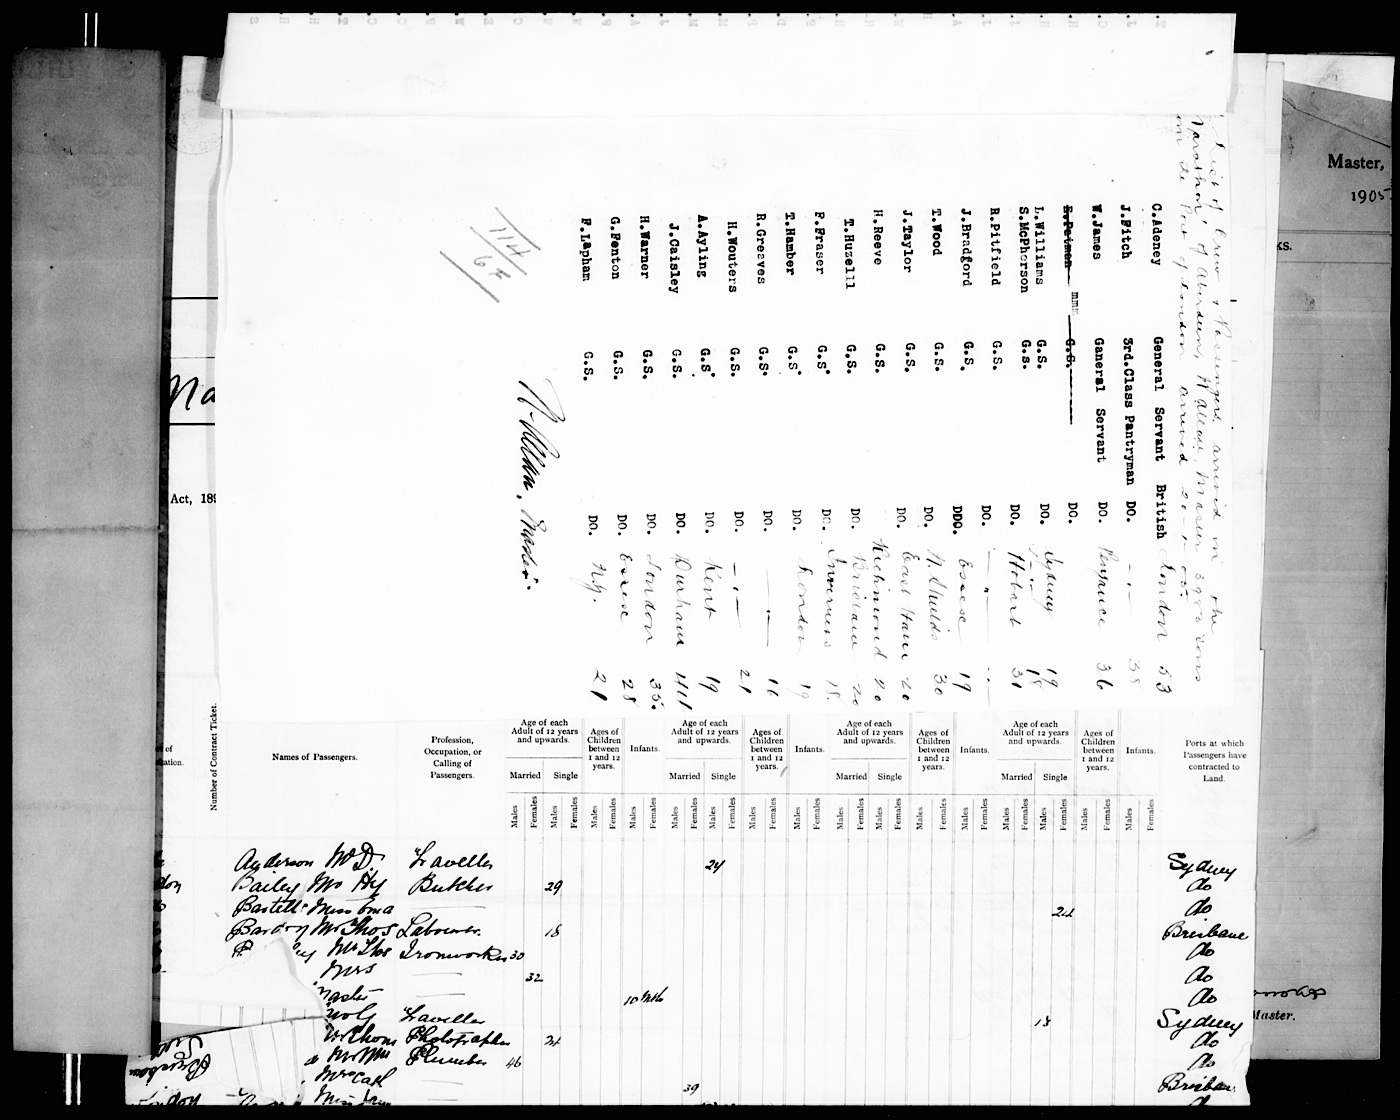 List of Crew & Passengers arrived in the
"Marathon" of Aberdeen, Master
the Port of London arrived 20-1-05.
C.Adeney General Servant British London 53
J.Fitch 3rd.Class Pantryman DO. -"- 38
W.James General Servant DO. Penzance 36
E.Petmen mmm G.S. DO.
L.Williams G.S. DO. Sydney 19
S.McPherson G.S. DO. Hobart 31
R.Pitfield G.S. DO. -"-
J.Bradford G.S. DDO. Essex 19
T.Wood G.S. DO. N. Shields 30
J.Taylor G.S. DO. East Ham 20
H.Reeve G.S. Richmond 20
T.Huzelll G.S. DO. Brixham 20
F.Fraser G.S. DO. Inverness 18.
T.Hamber G.S. DO. London 19
R.Greaves G.S. DO. -"- 16
H.Wouters G.S. DO. -"- 21
A.Ayling G.S. DO. Kent 19
J.Caisley G.S. DO. Durham 41
H.Warner G.S. DO. London 35.
G.Fenton G.S. DO. Essex 28
F.Lapham G.S. DO. N.Z. 21
114
67
Master.
Master,
1905
ks.
Master.
Na
Act, 189
Number of Contract Ticket.
Names of Passengers.
Profession, Occupation, or Calling of Passengers.
Age of each Adult of 12 years and upwards. Ages of Children between 1 and 12 years. Infants. Age of each Adult of 12 years and upwards. Ages of Children between 1 and 12 years. Infants. Age of each Adult of 12 years and upwards. Ages of Children between 1 and 12 years. Infants. Age of each Adult of 12 years and upwards. Ages of Children between 1 and 12 years. Infants.
Ports at which Passengers have contracted to Land.
Married Single Married Single Married Single Married Single
Males Females Males Females Males Females Males Females Males Females Males Females Males Females Males Females Males Females Males Females Males Females Males Females Males Females Males Females
Anderson Mr D. Traveller 24 Sydney
Bailey Mr Hy Butcher 29 do
Miss Ema 24 do
Mr Thos Labourer 18 Brisbane
Mr Thos Ironworker 30 do
Mrs 32 do
Master 10 mths do
Traveller 18 Sydney
Photographer 24 do
Mr Wm Plumber 46 do
Mrs Cath 39 Brisbane
Miss Jane do